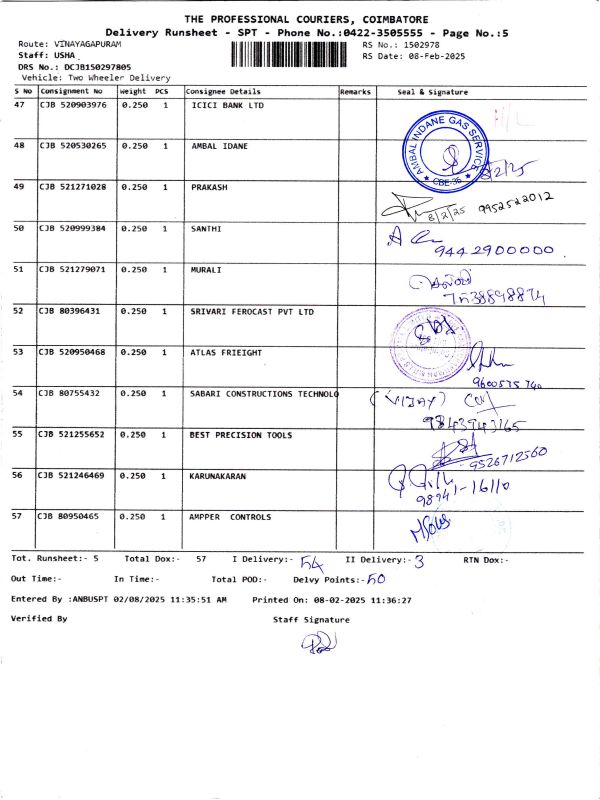 THE PROFESSIONAL COURIERS, COIMBATORE
Delivery Runsheet - SPT - Phone No.:0422-3505555 - Page No.:5
Route: VINAYAGAPURAM RS No.: 1502978
Staff: USHA RS Date: 08-Feb-2025
DRS No.: DCJB150297805
Vehicle: Two Wheeler Delivery
S No Consignment No Weight PCS Consignee Details Remarks Seal & Signature
47 CJB 520903976 0.250 1 ICICI BANK LTD
48 CJB 520530265 0.250 1 AMBAL IDANE
AMBAL INDANE GAS SERVICE
★ CBE-35 ★
8/2/25
49 CJB 521271028 0.250 1 PRAKASH
8/2/25 9952522012
50 CJB 520999384 0.250 1 SANTHI
9442900000
51 CJB 521279071 0.250 1 MURALI
52 CJB 80396431 0.250 1 SRIVARI FEROCAST PVT LTD
53 CJB 520950468 0.250 1 ATLAS FRIEIGHT
9600575740
54 CJB 80755432 0.250 1 SABARI CONSTRUCTIONS TECHNOLO (VIJAY)
9843943165
55 CJB 521255652 0.250 1 BEST PRECISION TOOLS
9526712560
56 CJB 521246469 0.250 1 KARUNAKARAN
98941-16110
57 CJB 80950465 0.250 1 AMPPER CONTROLS
Tot. Runsheet:- 5 Total Dox:- 57 I Delivery:- 54 II Delivery:- 3 RTN Dox:-
Out Time:- In Time:- Total POD:- Delvy Points:- 50
Entered By :ANBUSPT 02/08/2025 11:35:51 AM Printed On: 08-02-2025 11:36:27
Verified By Staff Signature